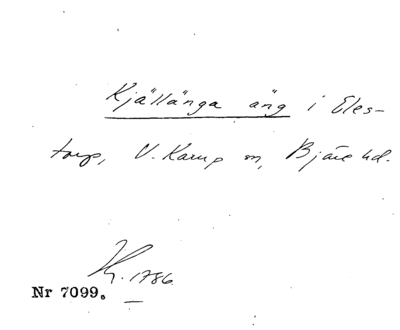 Kjällänga äng i Eles-
torp, V. Karup sn, Bjäre hd.
1786.
Nr 7099.